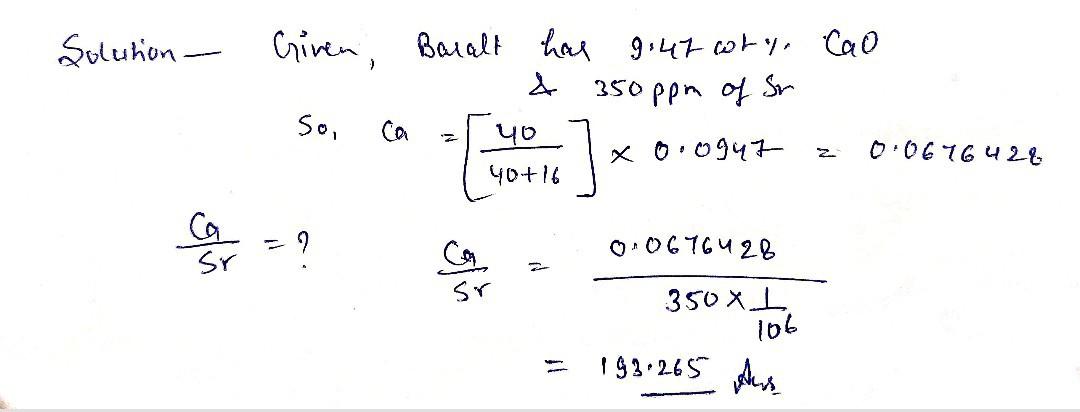 Solution — Given, Basalt has 9.47 wt %. CaO
& 350 ppm of Sr
So, Ca = [40/40+16] × 0.0947 = 0.0676428
Ca/Sr = ? Ca/Sr = 0.0676428/350 × 1/10⁶
= 193.265 Ans